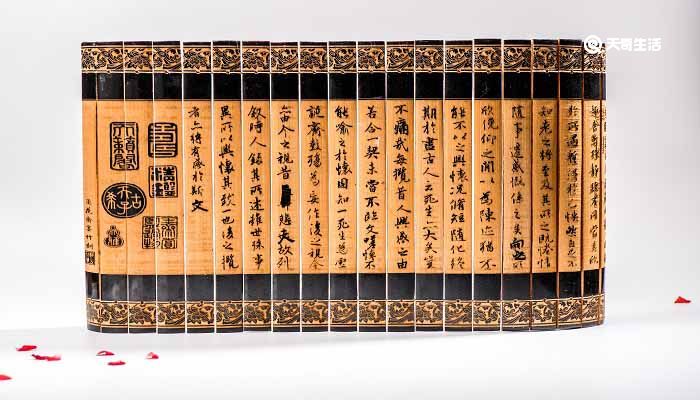 天奇生活
趣舍萬殊靜躁不同當其欣
於所遇蹔得於己怏然自足不
知老之將至及其所之既惓情
隨事遷感慨係之矣向之所
欣俛仰之閒以為陳迹猶不
能不以之興懷況脩短隨化終
期於盡古人云死生亦大矣豈
不痛哉每攬昔人興感之由
若合一契未嘗不臨文嗟悼不
能喻之於懷固知一死生為虛
誕齊彭殤為妄作後之視今
亦由今之視昔悲夫故列
敘時人錄其所述雖世殊事
異所以興懷其致一也後之攬
者亦將有感於斯文